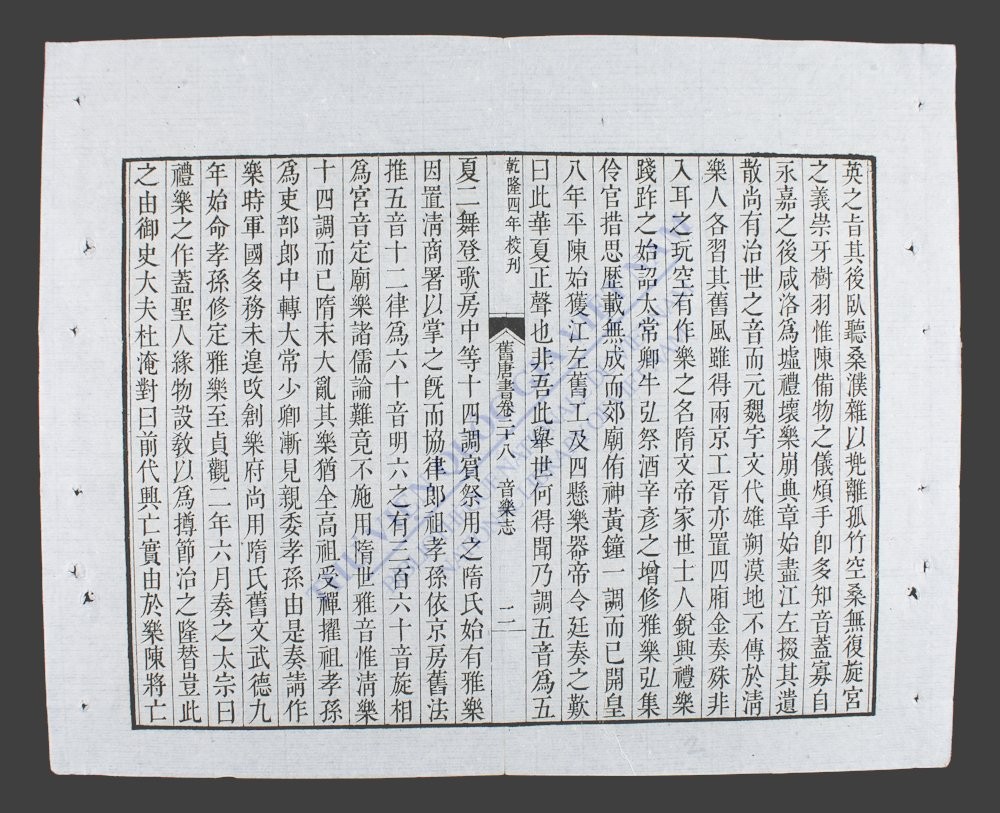 英之旨其後臥聽桑濮雜以兠離孤竹空桑無復旋宮
之義崇牙樹羽惟陳備物之儀煩手即多知音蓋寡自
永嘉之後咸洛爲墟禮壞樂崩典章始盡江左掇其遺
散尚有治世之音而元魏宇文代雄朔漠地不傳於淸
樂人各習其舊風雖得兩京工胥亦置四廂金奏殊非
入耳之玩空有作樂之名隋文帝家世士人銳興禮樂
踐阼之始詔太常卿牛弘祭酒辛彥之增修雅樂弘集
伶官措思歷載無成而郊廟侑神黃鐘一調而已開皇
八年平陳始獲江左舊工及四懸樂器帝令廷奏之歎
曰此華夏正聲也非吾此舉世何得聞乃調五音爲五
乾隆四年校刊
舊唐書卷二十八 音樂志
二
夏二舞登歌房中等十四調賓祭用之隋氏始有雅樂
因置淸商署以掌之旣而協律郎祖孝孫依京房舊法
推五音十二律爲六十音明六之有三百六十音旋相
爲宮音定廟樂諸儒論難竟不施用隋世雅音惟淸樂
十四調而已隋末大亂其樂猶全高祖受禪擢祖孝孫
爲吏部郎中轉大常少卿漸見親委孝孫由是奏請作
樂時軍國多務未遑改創樂府尚用隋氏舊文武德九
年始命孝孫修定雅樂至貞觀二年六月奏之太宗曰
禮樂之作蓋聖人緣物設敎以爲撙節治之隆替豈此
之由御史大夫杜淹對曰前代興亡實由於樂陳將亡
2
THƯ VIỆN QUỐC GIA VIỆT NAM